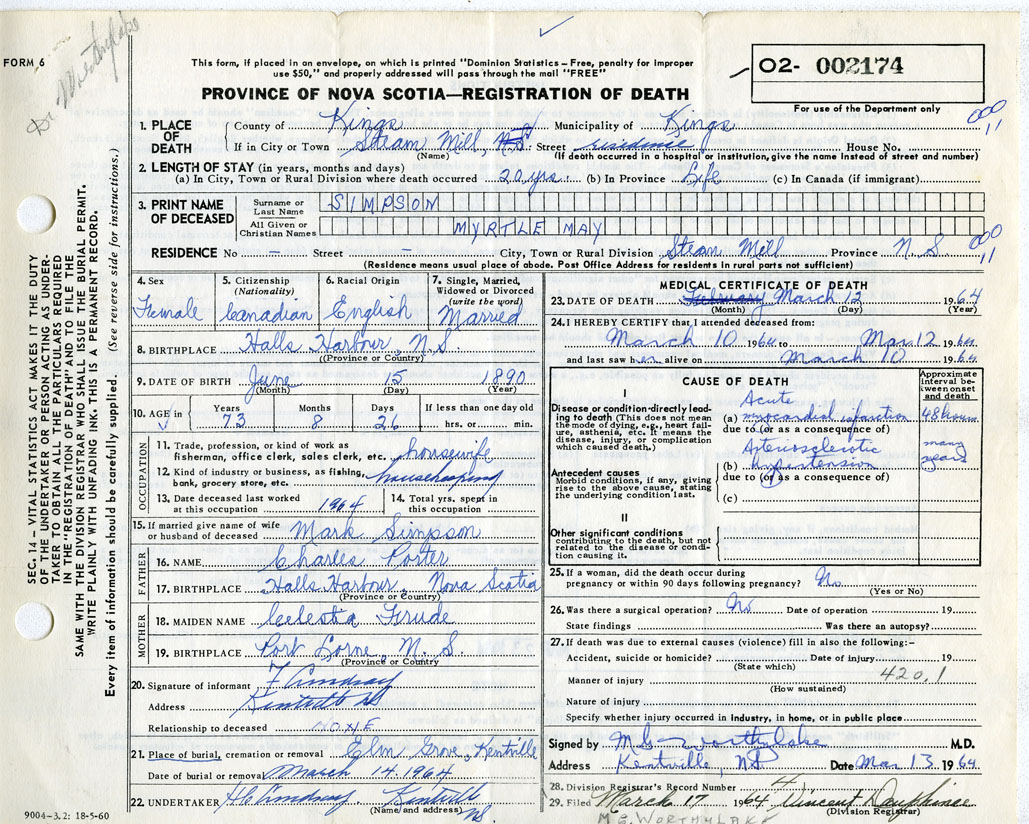 Dr. Worthylake
FORM 6
This form, if placed in an envelope, on which is printed "Dominion Statistics – Free, penalty for improper
use $50," and properly addressed will pass through the mail "FREE"
PROVINCE OF NOVA SCOTIA—REGISTRATION OF DEATH
O2- 002174
For use of the Department only
SEC. 14 – VITAL STATISTICS ACT MAKES IT THE DUTY
OF THE UNDERTAKER OR PERSON ACTING AS UNDER-
TAKER TO OBTAIN ALL THE PARTICULARS REQUIRED
IN THE "REGISTRATION OF DEATH" AND TO FILE THE
SAME WITH THE DIVISION REGISTRAR WHO SHALL ISSUE THE BURIAL PERMIT.
WRITE PLAINLY WITH UNFADING INK. THIS IS A PERMANENT RECORD.
Every item of information should be carefully supplied. (See reverse side for instructions.)
1. PLACE OF DEATH
County of Kings Municipality of Kings
If in City or Town Steam Mill, N.S. Street residence House No.
(Name) (If death occurred in a hospital or institution, give the name instead of street and number)
000
11
2. LENGTH OF STAY (in years, months and days)
(a) In City, Town or Rural Division where death occurred 20 yrs. (b) In Province Life (c) In Canada (if immigrant)
3. PRINT NAME OF DECEASED
Surname or Last Name SIMPSON
All Given or Christian Names MYRTLE MAY
RESIDENCE No – Street – City, Town or Rural Division Steam Mill Province N.S
000
11
(Residence means usual place of abode. Post Office Address for residents in rural parts not sufficient)
4. Sex Female
5. Citizenship (Nationality) Canadian
6. Racial Origin English
7. Single, Married, Widowed or Divorced (write the word) Married
8. BIRTHPLACE Halls Harbour, N.S.
(Province or Country)
9. DATE OF BIRTH June 15 1890
(Month) (Day) (Year)
10. AGE in Years 73 Months 8 Days 26 If less than one day old hrs. or min.
OCCUPATION
11. Trade, profession, or kind of work as
fisherman, office clerk, sales clerk, etc. housewife
12. Kind of industry or business, as fishing,
bank, grocery store, etc. housekeeping
13. Date deceased last worked
at this occupation 1964
14. Total yrs. spent in
this occupation
15. If married give name of wife
or husband of deceased Mark Simpson
FATHER
16. NAME Charles Porter
17. BIRTHPLACE Halls Harbour, Nova Scotia
(Province or Country)
MOTHER
18. MAIDEN NAME Celestia Frude
19. BIRTHPLACE Port Lorne, N.S.
(Province or Country
20. Signature of informant F Lindsay
Address Kentville NS
Relationship to deceased NONE
21. Place of burial, cremation or removal Elm Grove, Kentville
Date of burial or removal March 14, 1964
22. UNDERTAKER H C Lindsay, Kentville
(Name and address) NS.
9004-3.2: 18-5-60
MEDICAL CERTIFICATE OF DEATH
23. DATE OF DEATH February March 12 1964
(Month) (Day) (Year)
24. I HEREBY CERTIFY that I attended deceased from:
March 10 1964 to Mar 12 1964
and last saw her alive on March 10 1964
CAUSE OF DEATH
Approximate interval between onset and death
I
Disease or condition directly leading to death (This does not mean the mode of dying, e.g., heart failure, asthenia, etc. It means the disease, injury, or complication which caused death.)
(a) Acute myocardial infarction 48 hours
due to (or as a consequence of)
Antecedent causes
Morbid conditions, if any, giving rise to the above cause, stating the underlying condition last.
(b) Arteriosclerotic hypertension many years
due to (or as a consequence of)
(c)
II
Other significant conditions
contributing to the death, but not related to the disease or condition causing it.
25. If a woman, did the death occur during
pregnancy or within 90 days following pregnancy? No
(Yes or No)
26. Was there a surgical operation? No Date of operation 19
State findings Was there an autopsy?
27. If death was due to external causes (violence) fill in also the following:–
Accident, suicide or homicide? Date of injury 19
(State which) 420.1
Manner of injury
(How sustained)
Nature of injury
Specify whether injury occurred in industry, in home, or in public place
Signed by M E Worthylake M.D.
Address Kentville, NS Date Mar 13 1964
28. Division Registrar's Record Number 4
29. Filed March 17 1964 Vincent Dauphinee
(Division Registrar)
M E. WORTHYLAKE